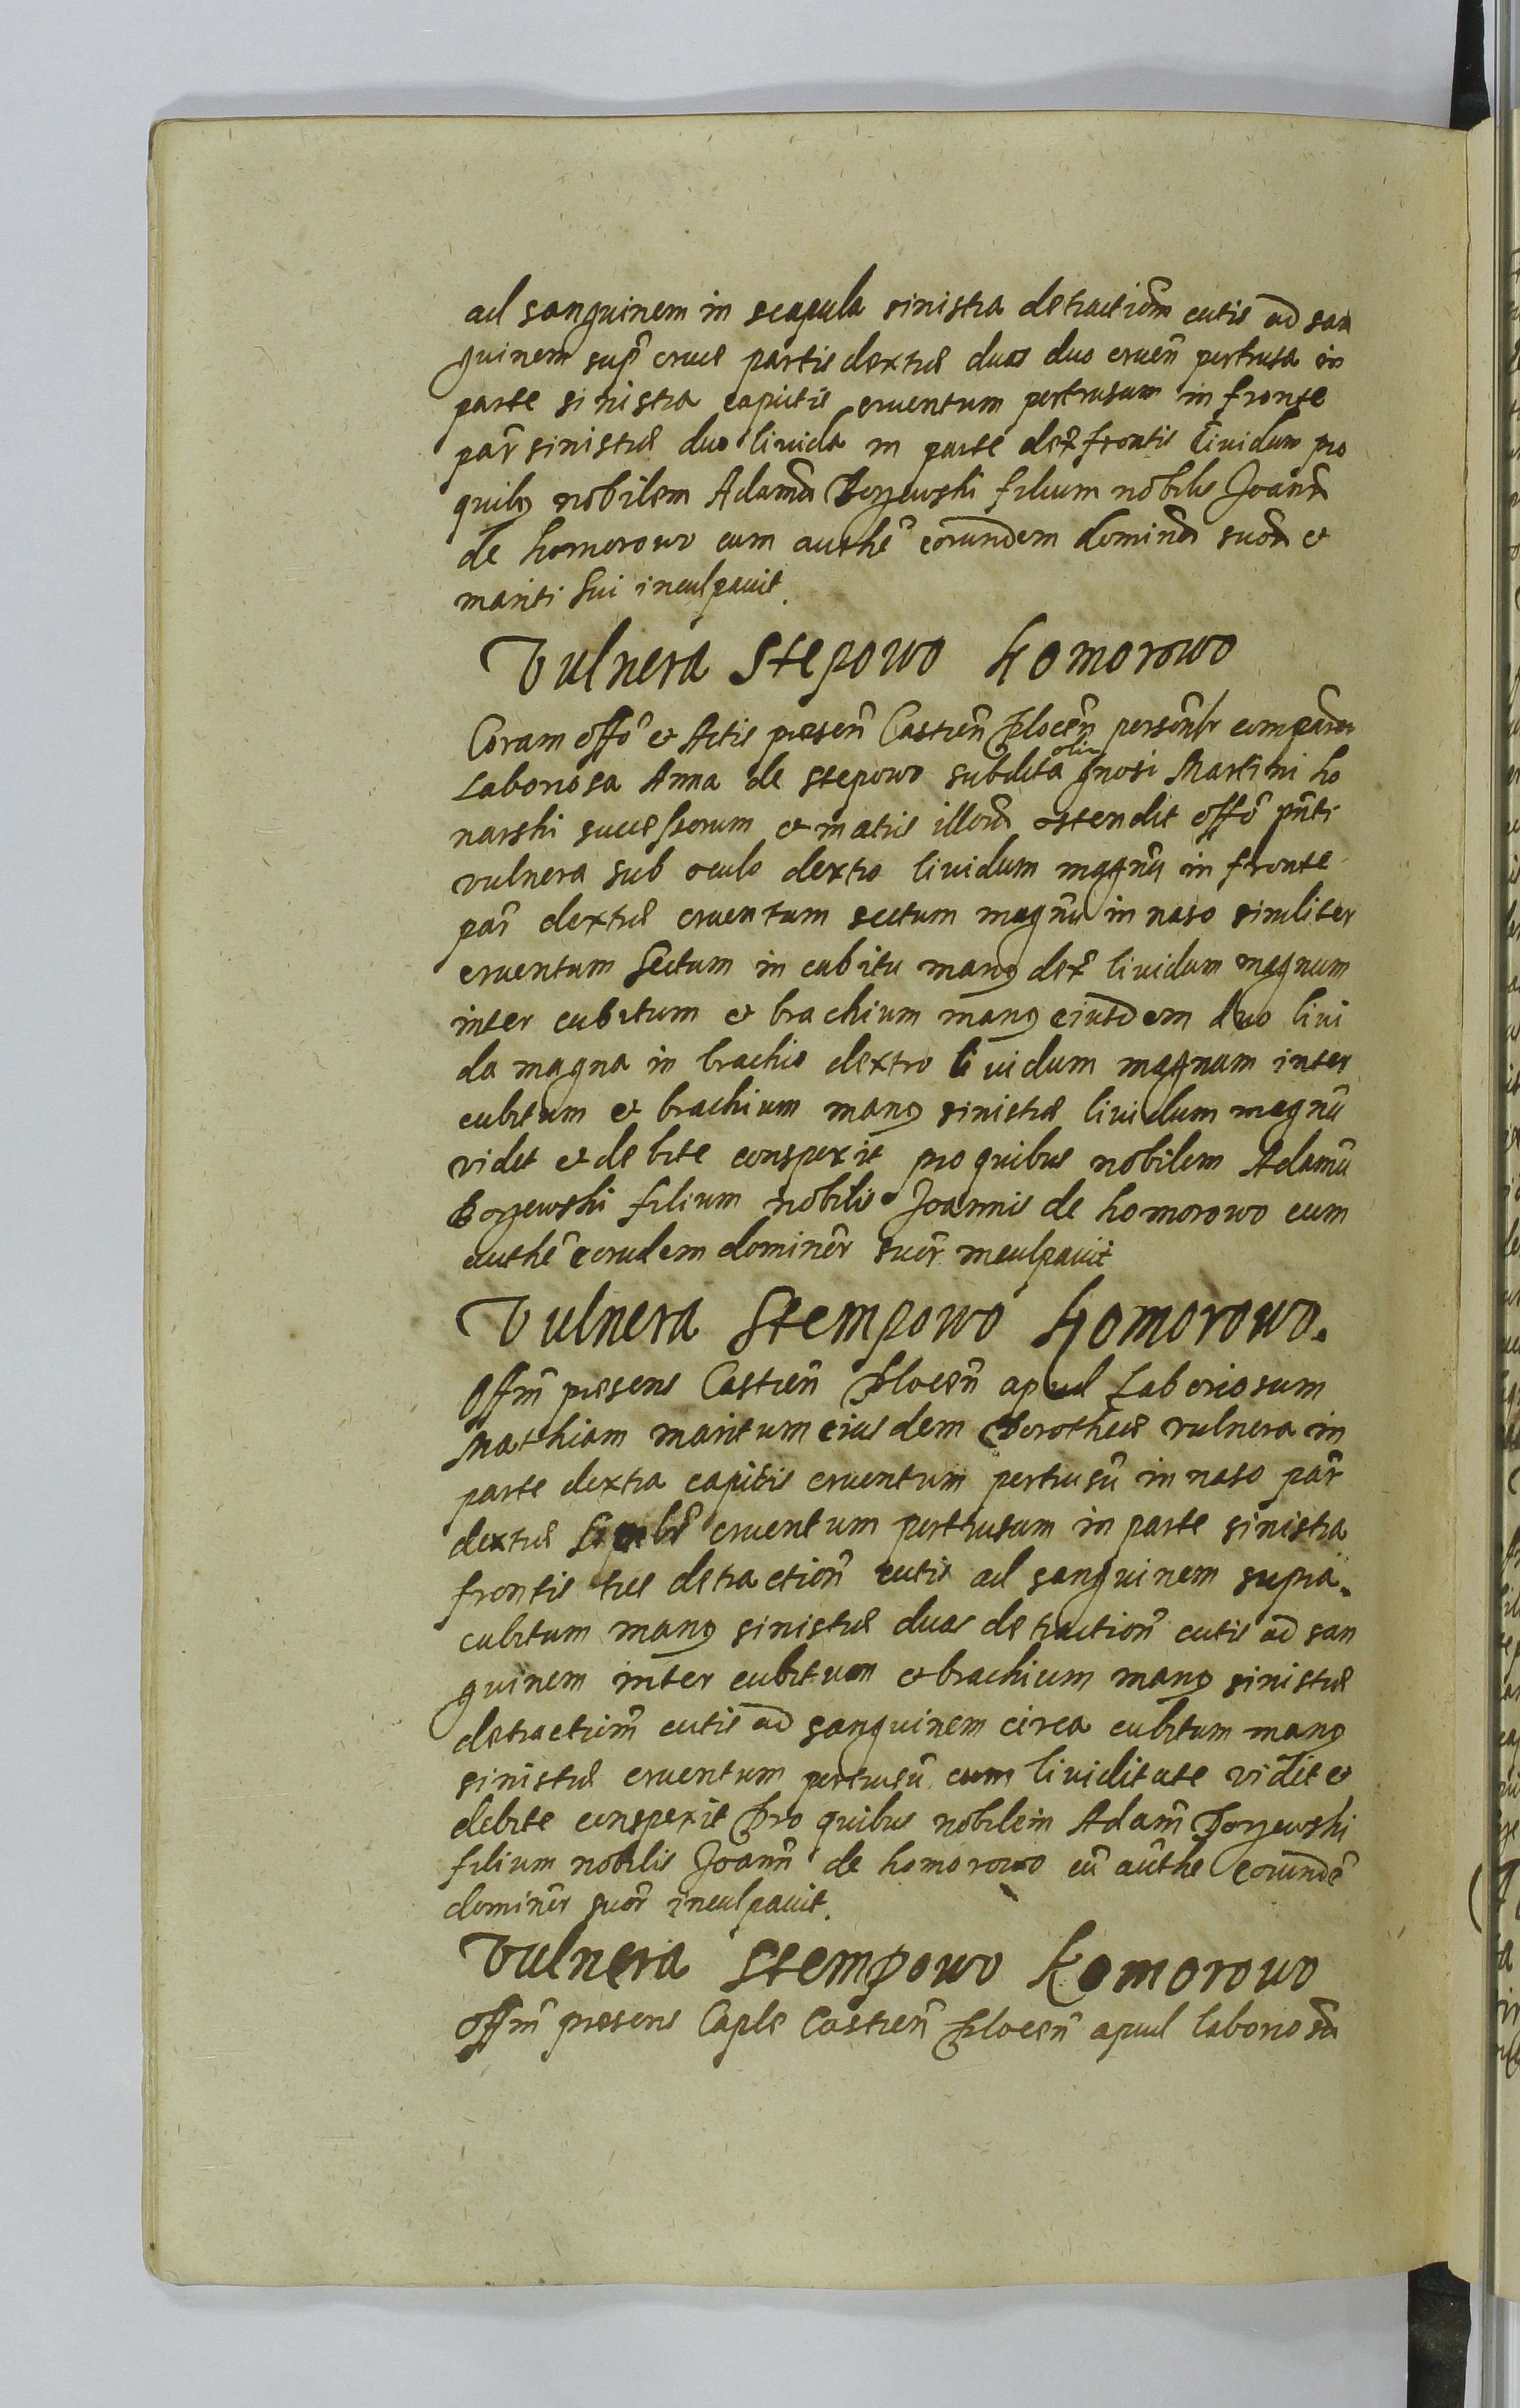 ad sanguinem in scapula sinistra detractiom̃ cutis ad san
guinem sup̃ crus partis dextræ duas duo cruen̄ pertrusa in
parte sinistra capitis cruentum pertrusum in fronte
par̃ sinistræ duo livida in parte dex̃ frontis lividum pro
quibꝰ nobilem Adamũ Borzewski filium nobilis Joañ
de Komorowo cum authẽ eorundem dominor̃ suor̃ et
mariti sui inculpavit.
Vulnera Stepowo Komorowo
Coram offõ et Actis præsen̄ Castren̄ Plocen̄ personłr comparen̄
Laboriosa Anna de Stepowo subdita olim gnosi Martini Ko
narski successorum et matris illor̃ ostendit offõ pn̄ti
vulnera sub oculo dextro lividum magnũ in fronte
par̃ dextræ cruentum sectum magnũ in naso similiter
cruentum sectum in cubitu manꝰ dex̃ lividum magnum
inter cubitum et brachium manꝰ eiusdem duo livi
da magna in brachio dextro lividum magnum inter
cubitum et brachium manꝰ sinistræ lividum magnũ
vidit et debite conspexit pro quibus nobilem Adamũ
Borzewski filium nobilis Joannis de Komorowo cum
authẽ eorudem dominor̃ suor̃ inculpavit
Vulnera Stempowo Komorowo.
Offm̃ præsens Castren̄ Plocen̄ apud Laboriosum
Mathiam maritum eiusdem Dorotheæ vulnera in
parte dextra capitis cruentum pertrusũ in naso par̃
dextræ cruentum pertrusum in parte sinistra
frontis tres detraction̄ cutis ad sanguinem supra
cubitum manꝰ sinistræ duas detraction̄ cutis ad san
guinem inter cubitum et brachium manꝰ sinistræ
detractium̃ cutis ad sanguinem circa cubitum manꝰ
sinistræ cruentum pertrusũ cum lividitate vidit et
debite conspexit Pro quibus nobilem Adam̃ Borzewski
filium nobilis Joañ de Komorowo cũ authẽ eorundẽ
dominor̃ suor̃ inculpavit.
Vulnera Stempowo Komorowo
Offm̃ præsens Capłe Castren̄ Plocen̄ apud laboriosũ